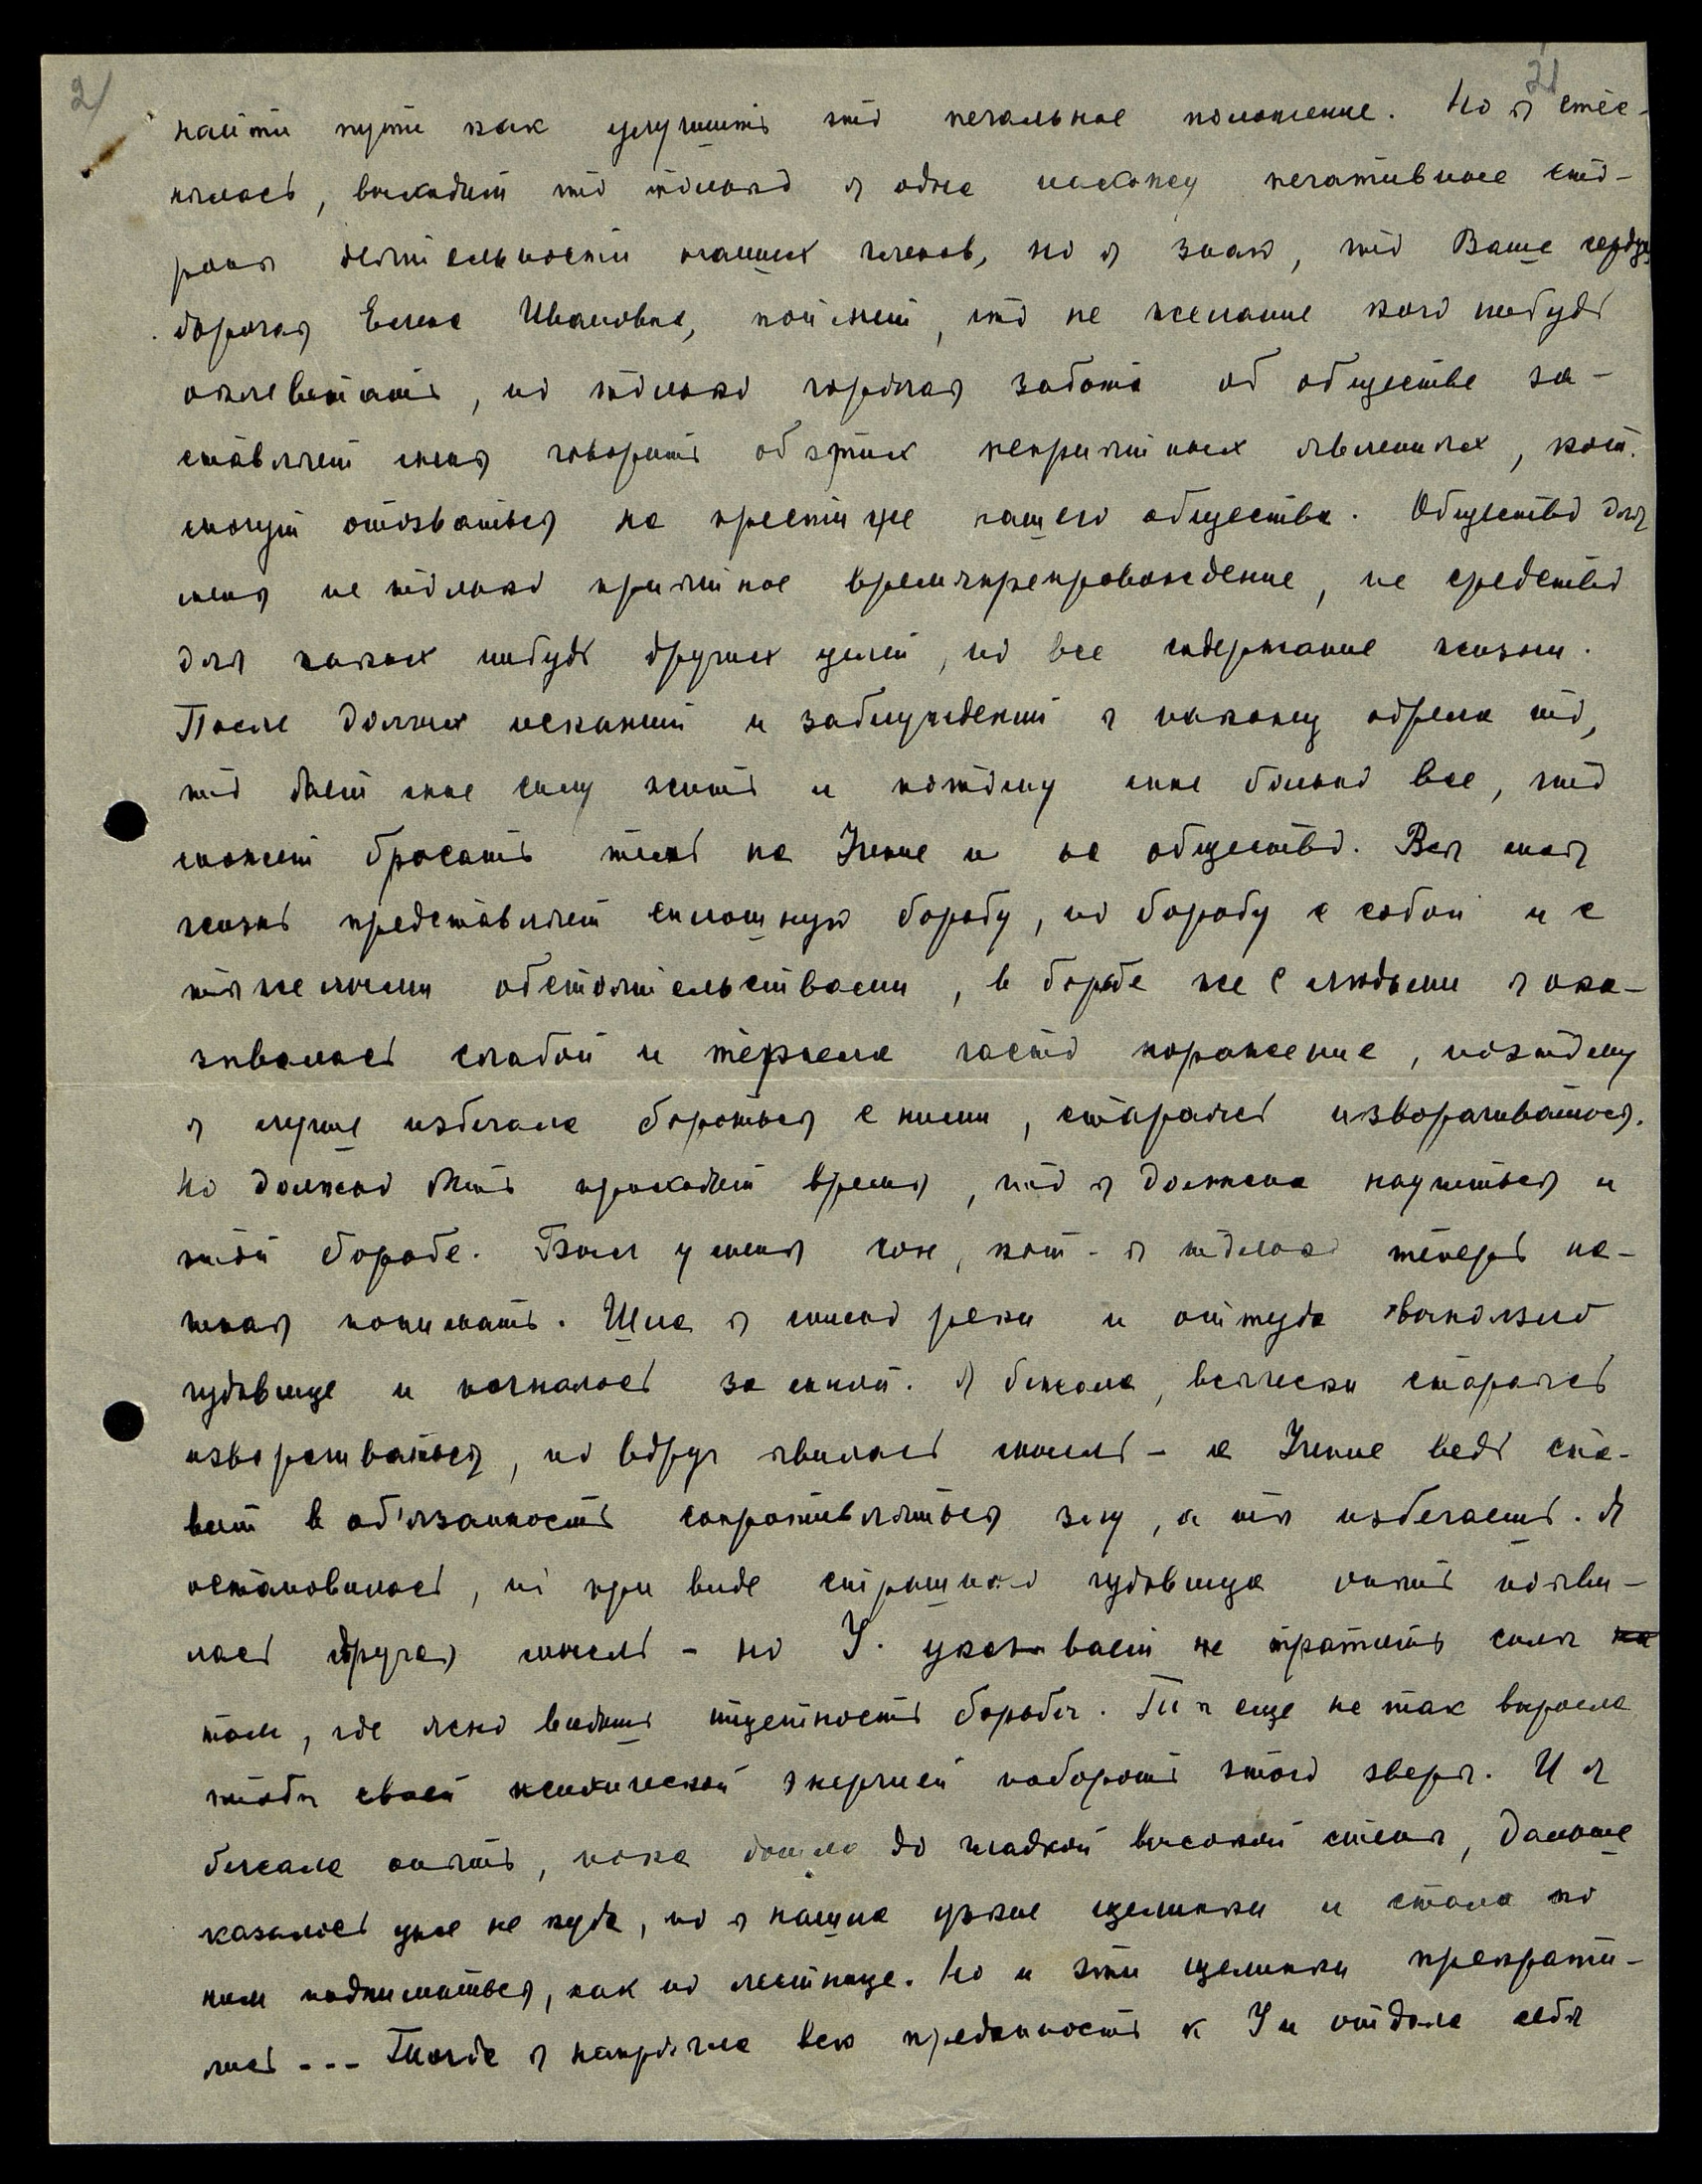 2/
21
найти пути как улучшить это печальное положение. Но я стес-
нялась, выходит что только я одна нахожу негативные сто-
роны деятельности наших членов, но я знаю, что Ваше сердце,
дорогая Елена Ивановна, поймет, что не желание кого нибудь
оклеветать, но только горячая забота об обществе за-
ставляет меня говорить об этих неприятных явлениях, кот.
могут отозваться на престиже нашего общества. Общество для
меня не только приятное времяпрепровождение, не средство
для каких нибудь других целей, но все содержание жизни.
После долгих исканий и заблуждений я наконец обрела то,
что дает мне силу жить и потому мне больно все, что
может бросать тень на Учение и на общество. Вся моя
жизнь представляет сплошную борьбу, но борьбу с собой и с
тяжелыми обстоятельствами, в борьбе же с людьми я ока-
зывалась слабой и терпела часто поражение, поэтому
я лучше избегала бороться с ними, стараясь изворачиваться.
Но должно быть приходит время, что я должна научиться и
этой борьбе. Был у меня сон, кот. я только теперь на-
чинаю понимать. Шла я мимо реки и оттуда выползло
чудовище и погналось за мной. Я бежала, всячески стараясь
изворачиваться, но вдруг явилась мысль - а Учение ведь ста-
вит в об'язанность сопротивляться злу, а ты избегаешь. Я
остановилась, но при виде страшного чудовища опять появи-
лась другая мысль - но У. указывает не тратить силы
там, где ясно видишь тщетность борьбы. Ты еще не так выросла
чтобы своей психической энергией побороть этого зверя. И я
бежала опять, пока дошла до гладкой высокой стены, дальше
казалось уже не куда, но я нашла узкие щелинки и стала по
ним подниматься, как по лестнице. Но и эти щелинки прекрати-
лись --- Тогда я напрягла всю преданность к У и отдала себя